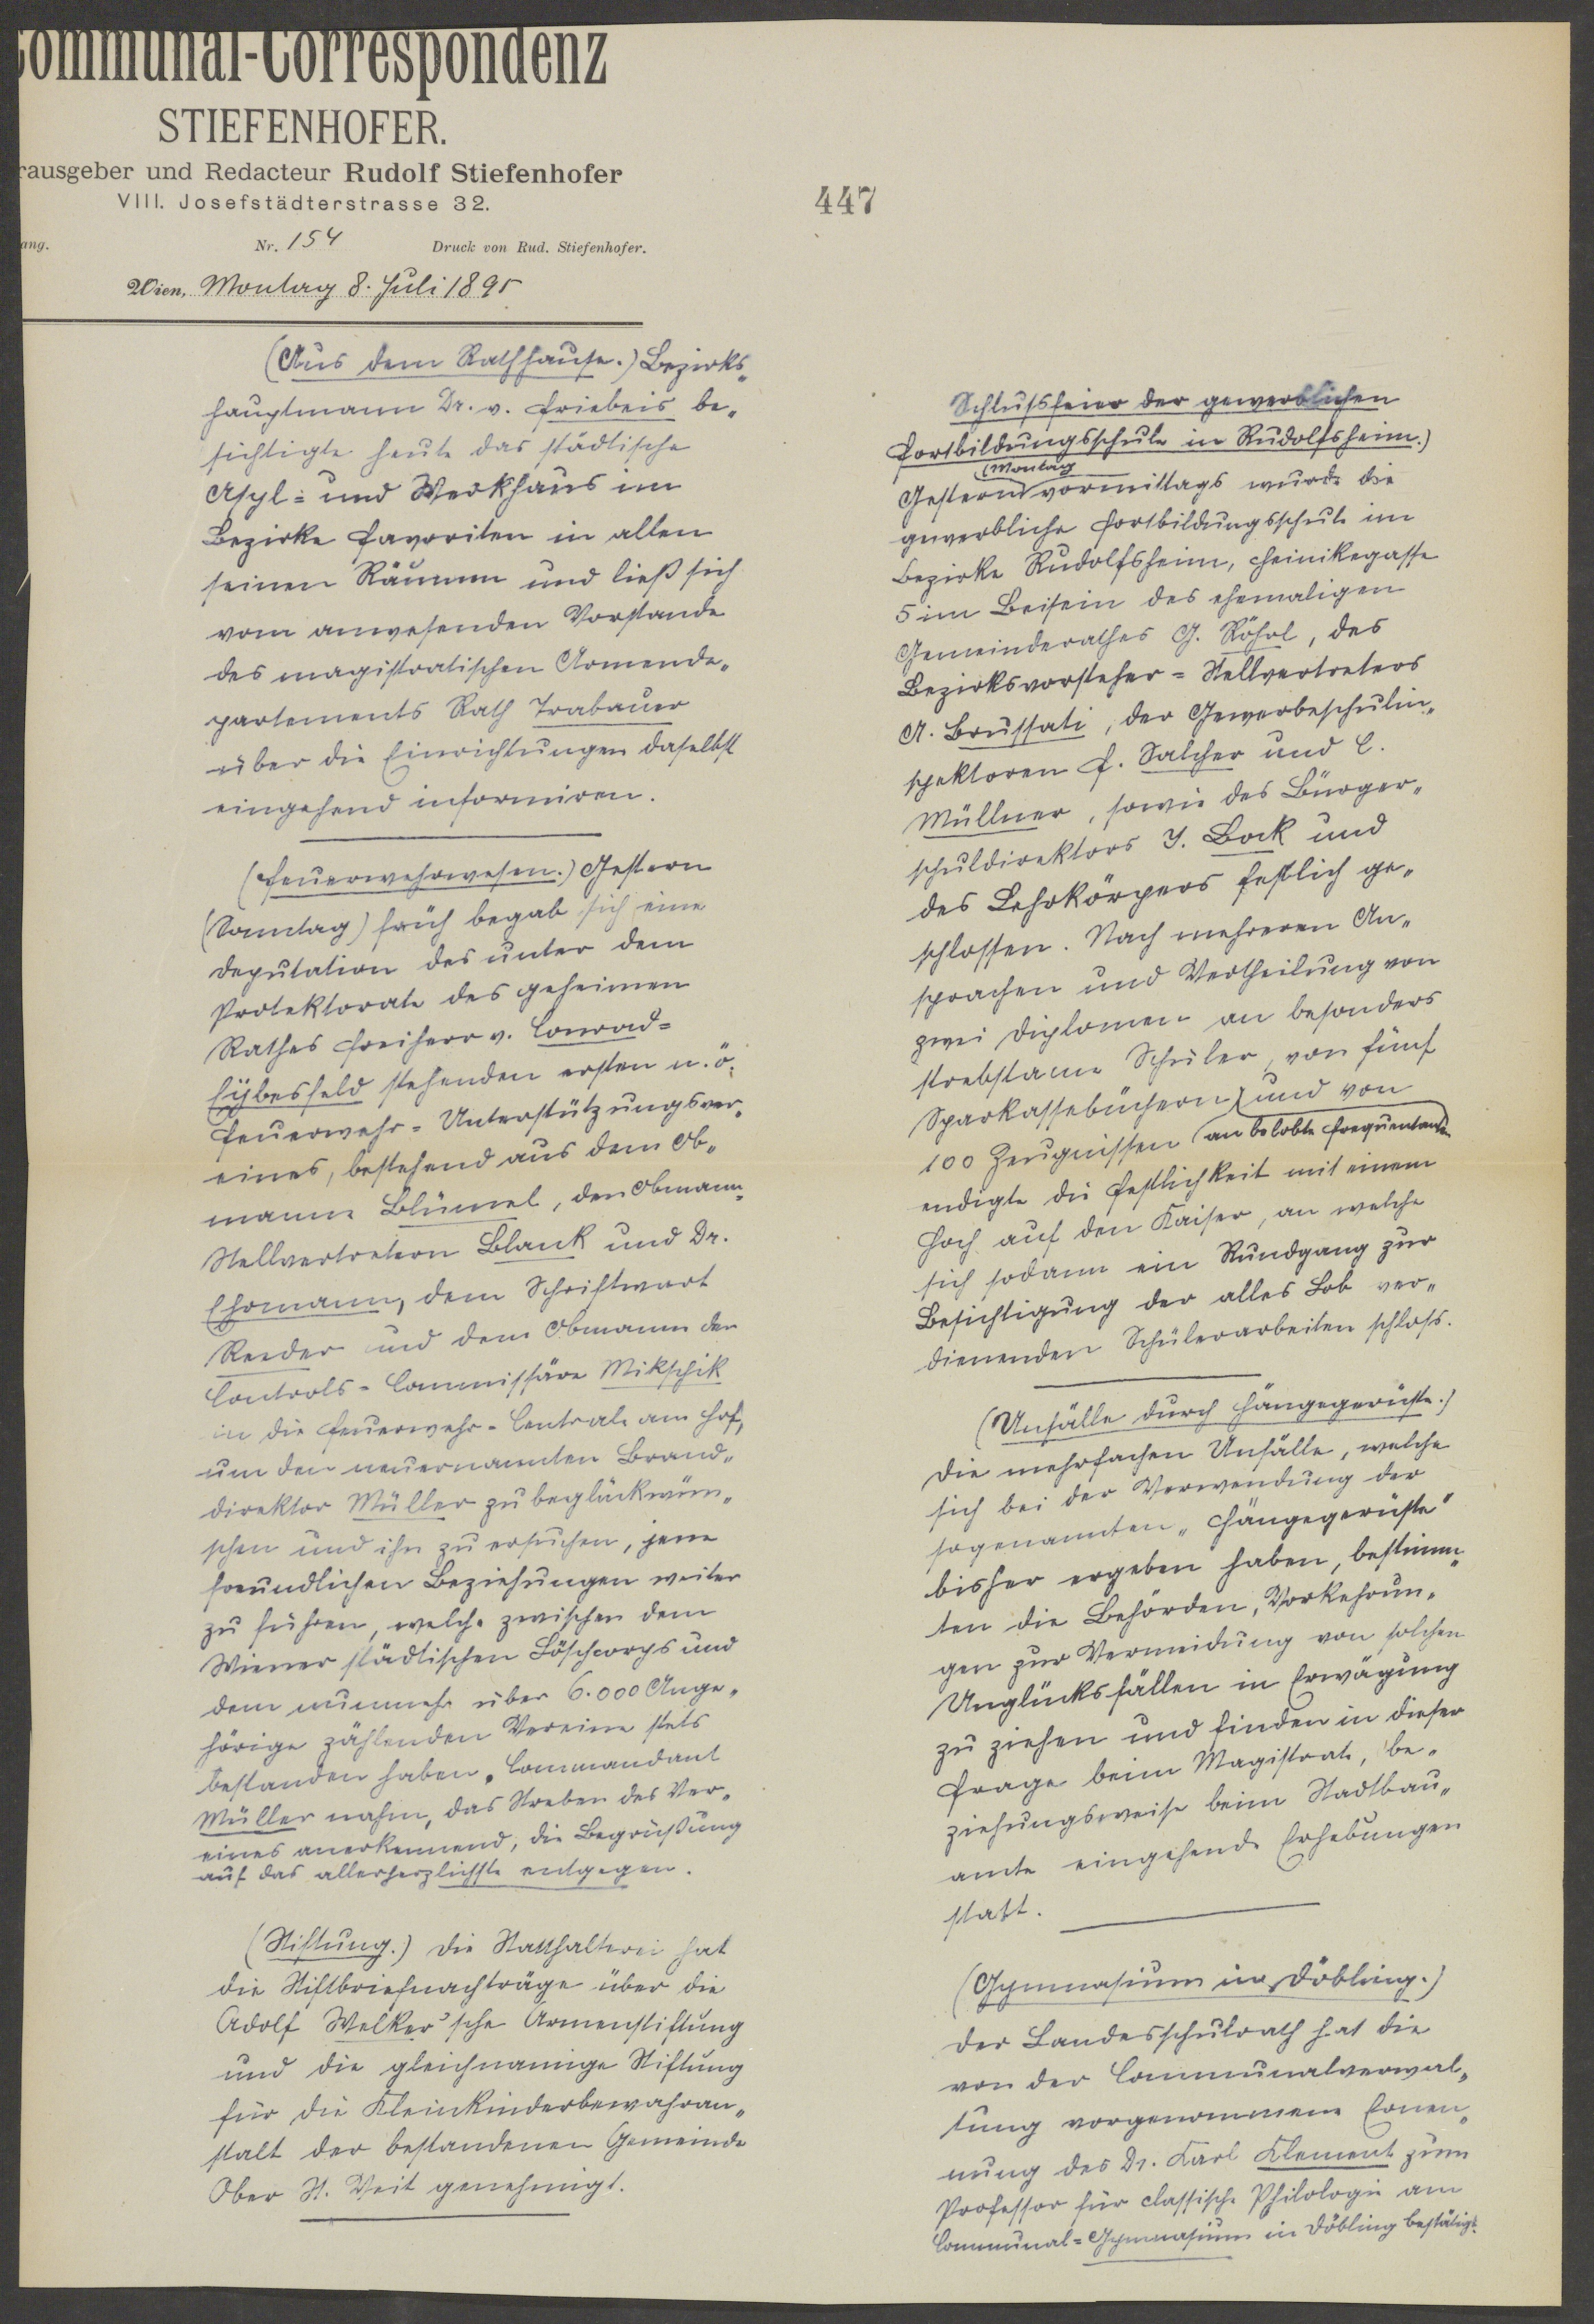 Communal-Correspondenz
STIEFENHOFER.
rausgeber und Redacteur Rudolf Stiefenhofer
VIII. Josefstädterstrasse 32.
ang. Nr. 154 Druck von Rud. Stiefenhofer.
Wien, Montag 8. Juli 1895
447
(Aus dem Rathhause.) Bezirks-
hauptmann Dr. v. Friebeis be-
sichtigte heute das städtische
Asyl- und Werkhaus im
Bezirke Favoriten in allen
seinen Räumen und ließ sich
vom anwesenden Vorstande
des magistratischen Armende-
partements Rath Trabauer
über die Einrichtungen daselbst
eingehend informiren.
(Feuerwehrwesen.) Gestern
(Sonntag) früh begab sich eine
Deputation des unter dem
Protektorate des geheimen
Rathes Freiherr v. Conrad-
Eybesfeld stehenden ersten n.ö.
Feuerwehr-Unterstützungsver-
eines, bestehend aus dem Ob-
manne Blümel, den Obmann-
Stellvertretern Blank und Dr.
Ehrmann, dem Schriftwart
Reeder und dem Obmann der
Controls-Commissäre Mikschik
in die Feuerwehr-Centrale am Hof,
um den neuernannten Brand-
direktor Müller zu beglückwün-
schen und ihn zu ersuchen, jene
freundlichen Beziehungen weiter
zu führen, welche zwischen dem
Wiener städtischen Löschcorps und
dem nunmehr über 6.000 Ange-
hörige zählenden Vereine stets
bestanden haben. Commandant
Müller nahm, das Streben des Ver-
eines anerkennend, die Begrüßung
auf das allerherzlichste entgegen.
(Stiftung.) Die Statthalterei hat
die Stiftbriefnachträge über die
Adolf Welker'sche Armenstiftung
und die gleichnamige Stiftung
für die Kleinkinderbewahran-
stalt der bestandenen Gemeinde
Ober St. Veit genehmigt.
Schlussfeier der gewerblichen
Fortbildungsschule in Rudolfsheim.)
(Montag
Gestern) vormittags wurde die
gewerbliche Fortbildungsschule im
Bezirke Rudolfsheim, Heinikegasse
5 im Beisein des ehemaligen
Gemeinderathes G. Röhrl, des
Bezirksvorsteher-Stellvertreters
A. Brussati, der Gewerbeschulin-
spektoren F. Salcher und C.
Müllner, sowie des Bürger-
schuldirektors J. Bock und
des Lehrkörpers festlich ge-
schlossen. Nach mehreren An-
sprachen und Vertheilung von
zwei Diplomen an besonders
strebsame Schüler, von fünf
Sparkassebüchern und von
100 Zeugnissen an belobte Frequentanten
endigte die Festlichkeit mit einem
Hoch auf den Kaiser, an welche
sich sodann ein Rundgang zur
Besichtigung der alles Lob ver-
dienenden Schülerarbeiten schloss.
(Unfälle durch Hängegerüste.)
Die mehrfachen Unfälle, welche
sich bei der Verwendung der
sogenannten „Hängegerüste"
bisher ergeben haben, bestimm-
ten die Behörden, Vorkehrun-
gen zur Vermeidung von solchen
Unglücksfällen in Erwägung
zu ziehen und finden in dieser
Frage beim Magistrate, be-
ziehungsweise beim Stadtbau-
amte eingehende Erhebungen
statt.
(Gymnasium in Döbling.)
Der Landesschulrath hat die
von der Communalverwal-
tung vorgenommene Ernen-
nung des Dr. Karl Klement zum
Professor für classische Philologie am
Communal-Gymnasium in Döbling bestätigt.